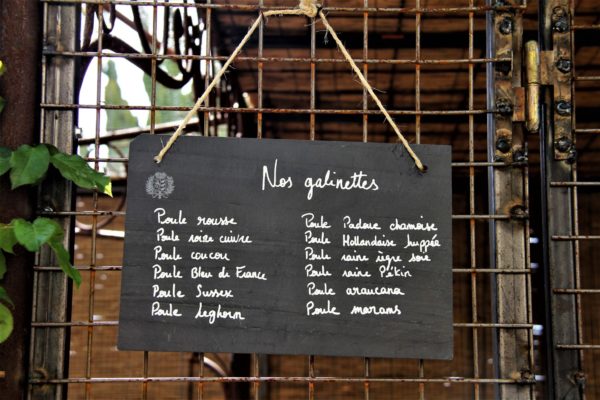 Nos galinettes
Poule rousse
Poule noire cuivre
Poule coucou
Poule Bleu de France
Poule Sussex
Poule leghorn
Poule Padoue chamoise
Poule Hollandaise huppée
Poule naine nègre soie
Poule naine Pékin
Poule araucana
Poule marans